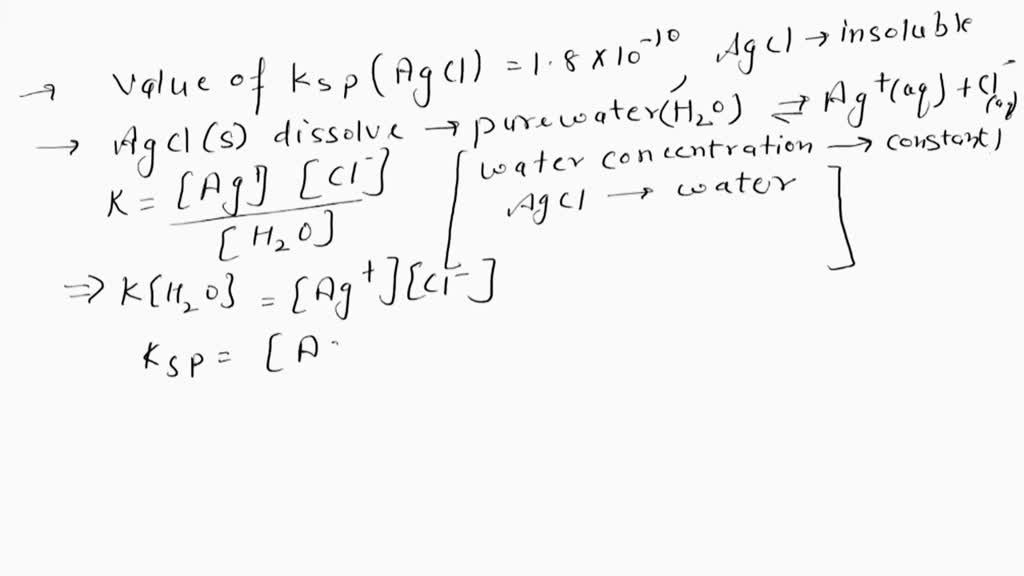 → Value of Ksp (AgCl) = 1.8 × 10⁻¹⁰, AgCl → insoluble
→ AgCl(s) dissolve → pure water (H₂O) ⇌ Ag⁺(aq) + Cl⁻(aq)
K = [Ag⁺] [Cl⁻] / [H₂O] [water concentration → constant)
AgCl → water]
⇒ K[H₂O] = [Ag⁺][Cl⁻]
Ksp = [A